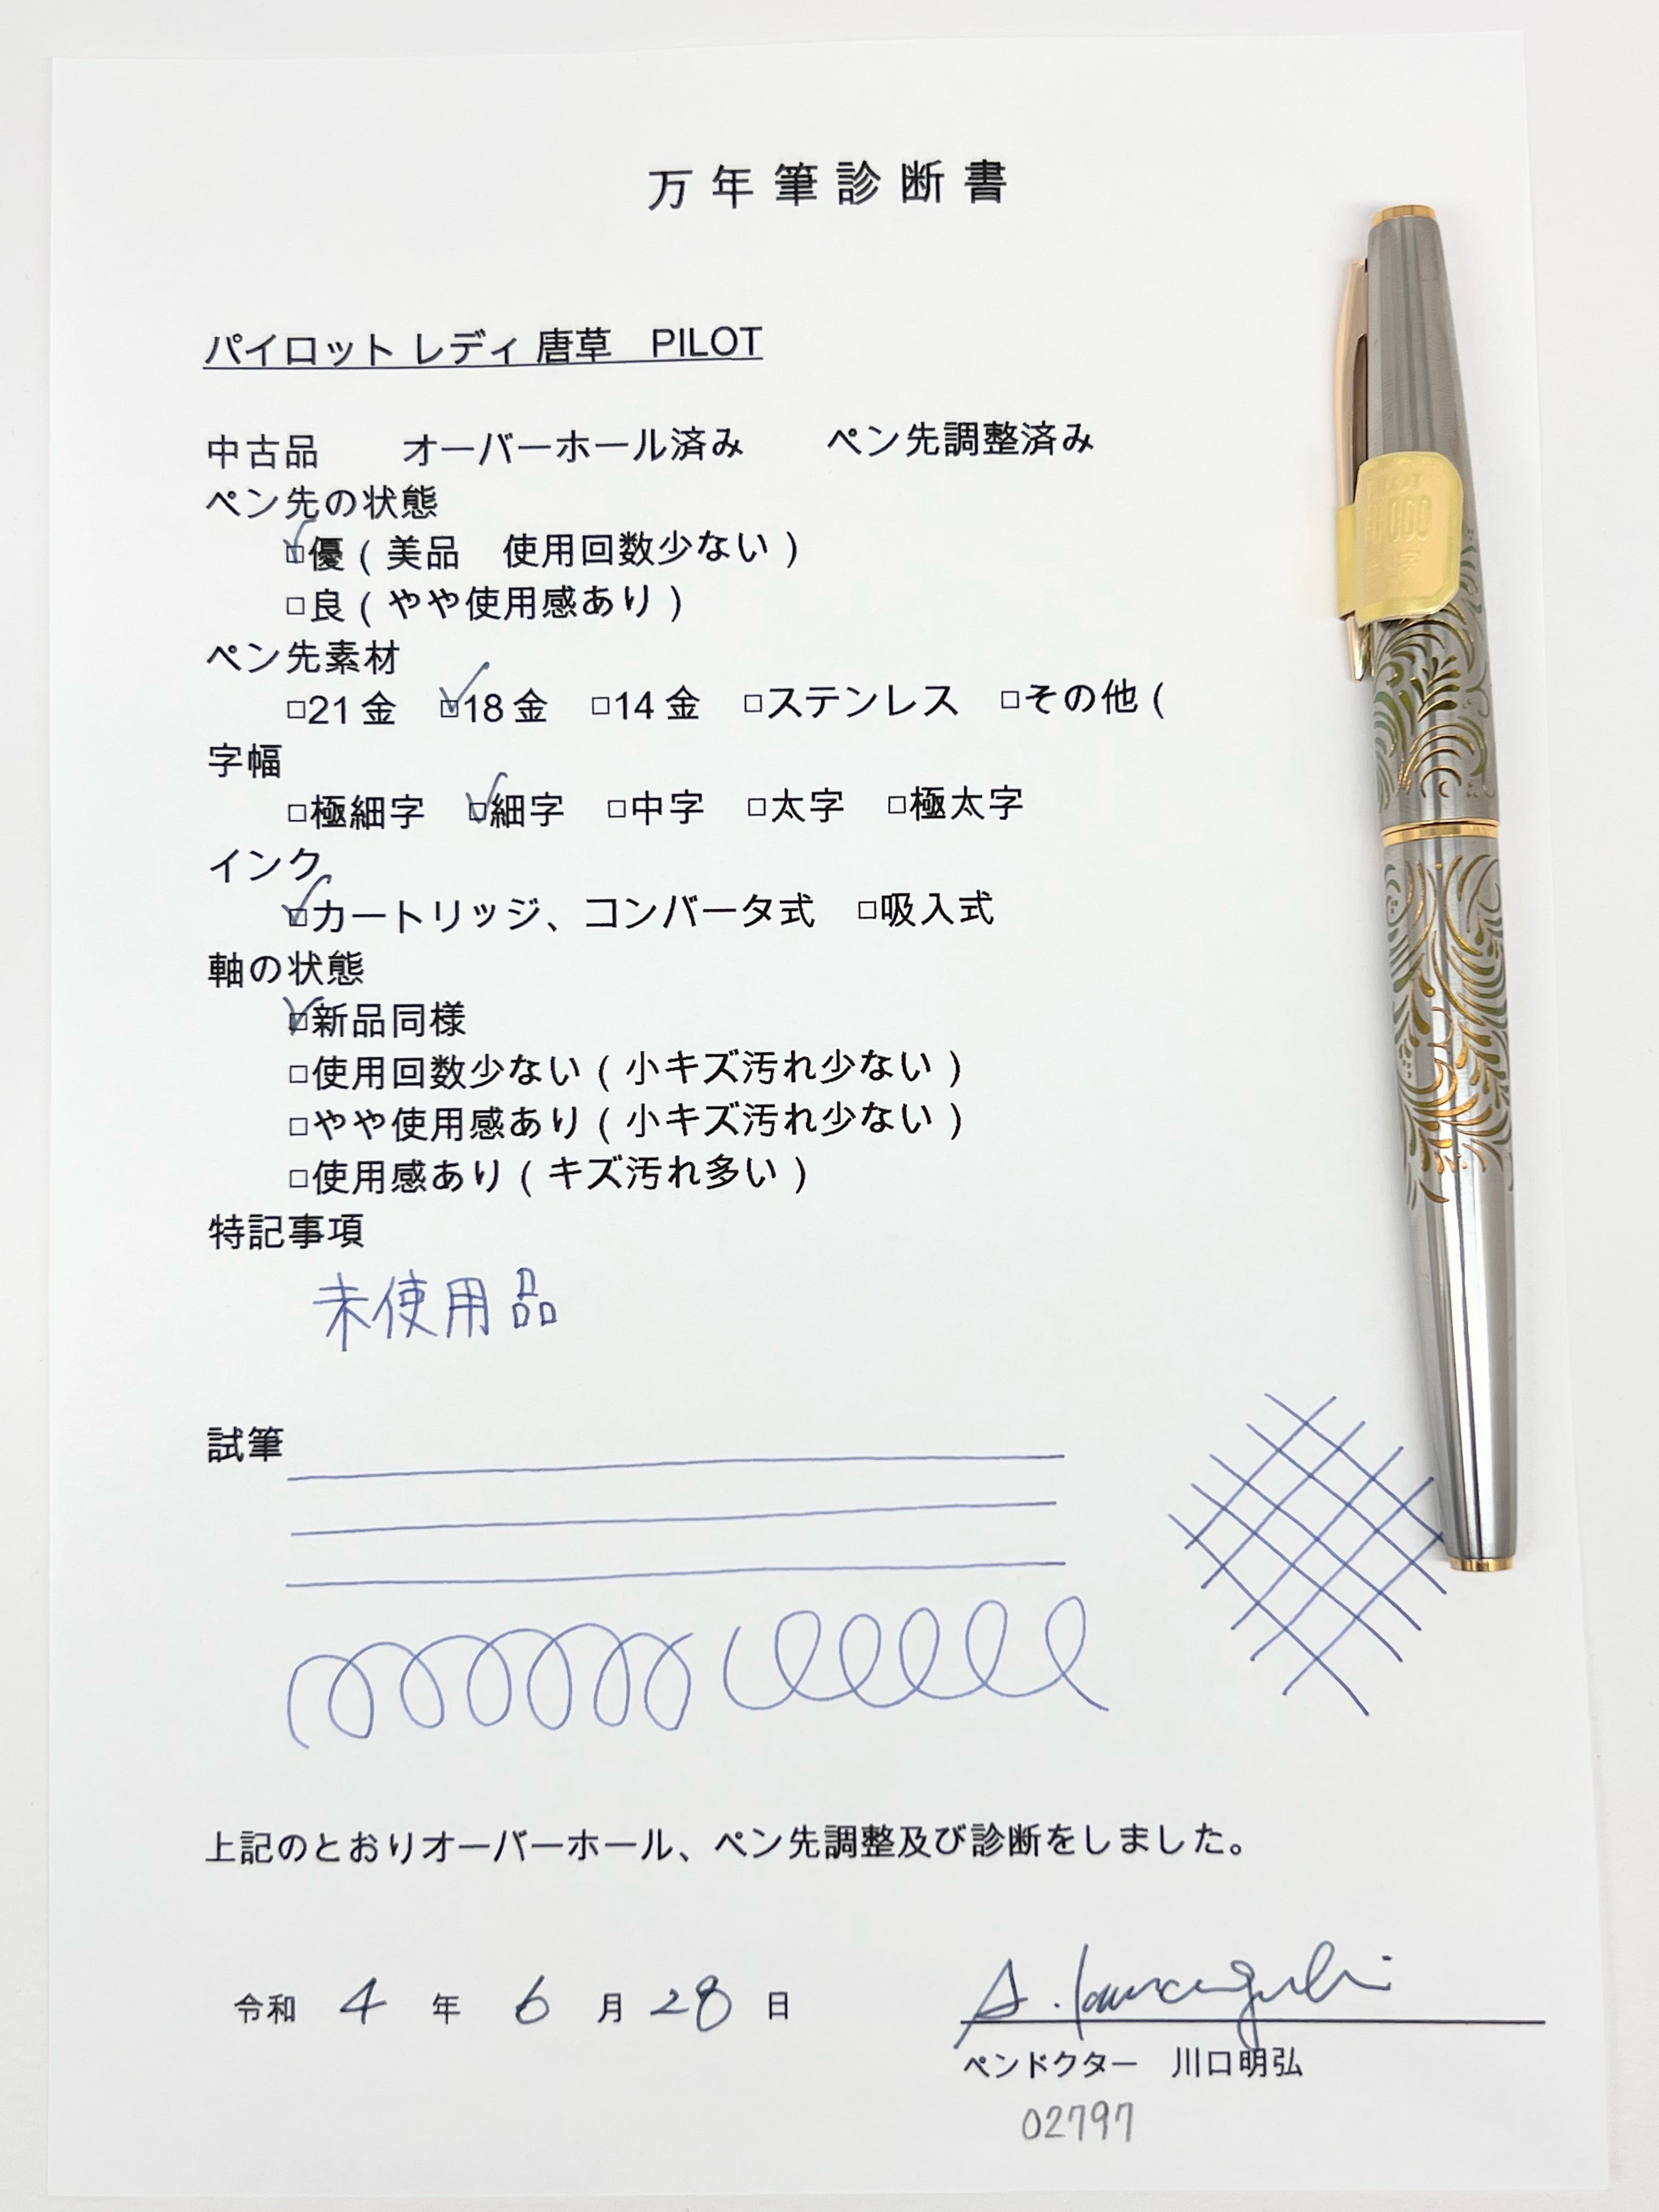 万年筆診断書
パイロット レディ 唐草　PILOT
中古品　　オーバーホール済み　　ペン先調整済み
ペン先の状態
☑優（美品　使用回数少ない）
□良（やや使用感あり）
ペン先素材
□21金　☑18金　□14金　□ステンレス　□その他（
字幅
□極細字　☑細字　□中字　□太字　□極太字
インク
☑カートリッジ、コンバータ式　□吸入式
軸の状態
☑新品同様
□使用回数少ない（小キズ汚れ少ない）
□やや使用感あり（小キズ汚れ少ない）
□使用感あり（キズ汚れ多い）
特記事項
未使用品
試筆
上記のとおりオーバーホール、ペン先調整及び診断をしました。
令和　4　年　6　月　28　日
ペンドクター　川口明弘
02797